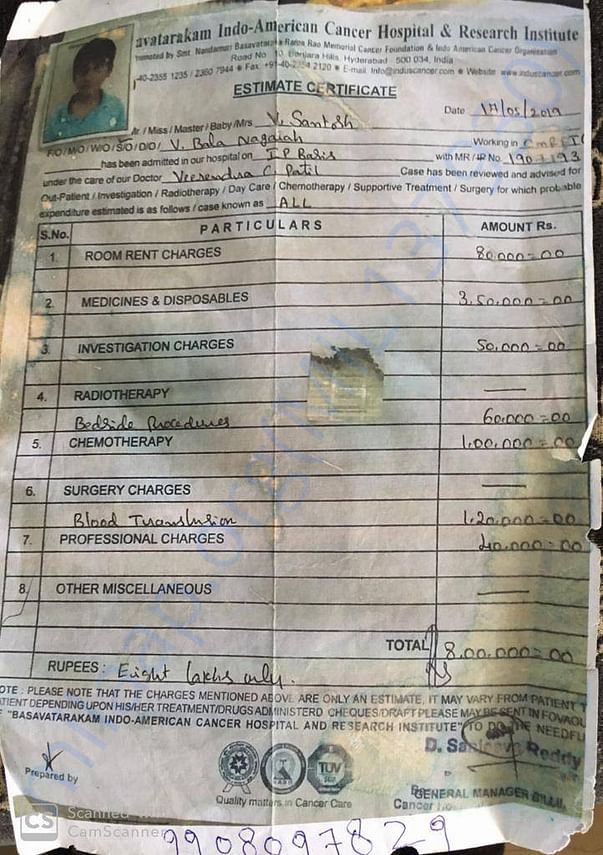 avatarakam Indo-American Cancer Hospital & Research Institute
romoted by Smt. Nandamuri Basavataraka Rama Rao Memorial Cancer Foundation & Indo American Cancer Organisation
Road No. 10, Banjara Hills, Hyderabad - 500 034, India
-40-2355 1235 / 2360 7944 ★ Fax: +91-40-2354 2120 ★ E-mail: info@induscancer.com ★ Website www.induscancer.com
ESTIMATE CERTIFICATE
Date 17/05/2019
Mr. / Miss / Master / Baby / Mrs V. Santosh
F/O / M/O / W/O / S/O / D/O / V. Bala Nagaiah Working in
has been admitted in our hospital on I P Basis with MR / IP No.
under the care of our Doctor Veerendra C. Patil Case has been reviewed and advised for
Out-Patient / Investigation / Radiotherapy / Day Care / Chemotherapy / Supportive Treatment / Surgery for which probable
expenditure estimated is as follows / case known as ALL
S.No. PARTICULARS AMOUNT Rs.
1. ROOM RENT CHARGES 80,000=00
2. MEDICINES & DISPOSABLES 3,50,000=00
3. INVESTIGATION CHARGES 50,000=00
4. RADIOTHERAPY —
Bedside Procedures 60,000=00
5. CHEMOTHERAPY 1,00,000=00
6. SURGERY CHARGES —
Blood Transfusion 1,20,000=00
7. PROFESSIONAL CHARGES 40,000=00
8. OTHER MISCELLANEOUS —
TOTAL 8,00,000=00
RUPEES : Eight lakhs only.
OTE : PLEASE NOTE THAT THE CHARGES MENTIONED ABOVE ARE ONLY AN ESTIMATE, IT MAY VARY FROM PATIENT T
ATIENT DEPENDING UPON HIS/HER TREATMENT/DRUGS ADMINISTERD CHEQUES/DRAFT PLEASE MAY BE SENT IN FOVAOU
"BASAVATARAKAM INDO-AMERICAN CANCER HOSPITAL AND RESEARCH INSTITUTE" TO DO THE NEEDFUL
D. Sanjeeva Reddy
Prepared by
TUV
Quality matters in Cancer Care
GENERAL MANAGER BILLI
Cancer
CS Scanned with
CamScanner
9908097829